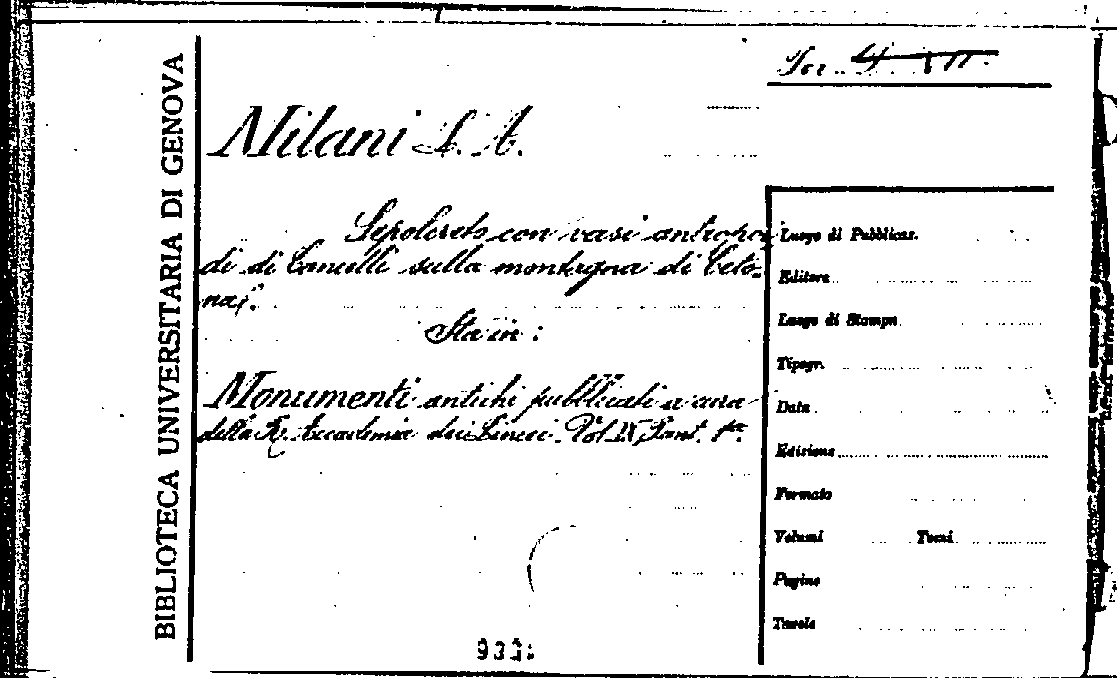 BIBLIOTECA UNIVERSITARIA DI GENOVA
Ser.
Milani L. A.
Sepolcreto con vasi antropoi
di di Cancelli sulla montagna di Ceto-
na.
Sta in:
Monumenti antichi pubblicati a cura
della R. Accademia dei Lincei. Vol. IX, Punt. 1ª.
Luogo di Pubblicaz.
Editore
Luogo di Stampa
Tipogr.
Data
Edizione
Formato
Volumi Tomi
Pagine
Tavole